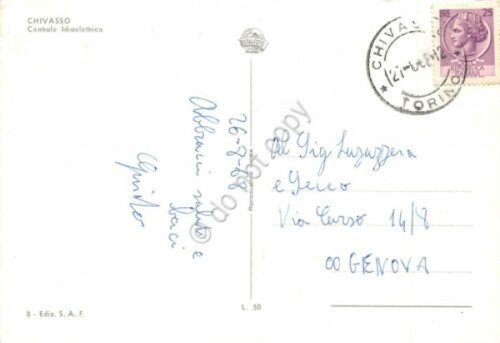 CHIVASSO
Centrale Idroelettrica
25
CHIVASSO
TORINO
26-7-68
Abbracci saluti e
baci
Al Sig
e
Via 14/8
00 GENOVA
8 - Ediz. S. A. F.
L. 50
do not copy